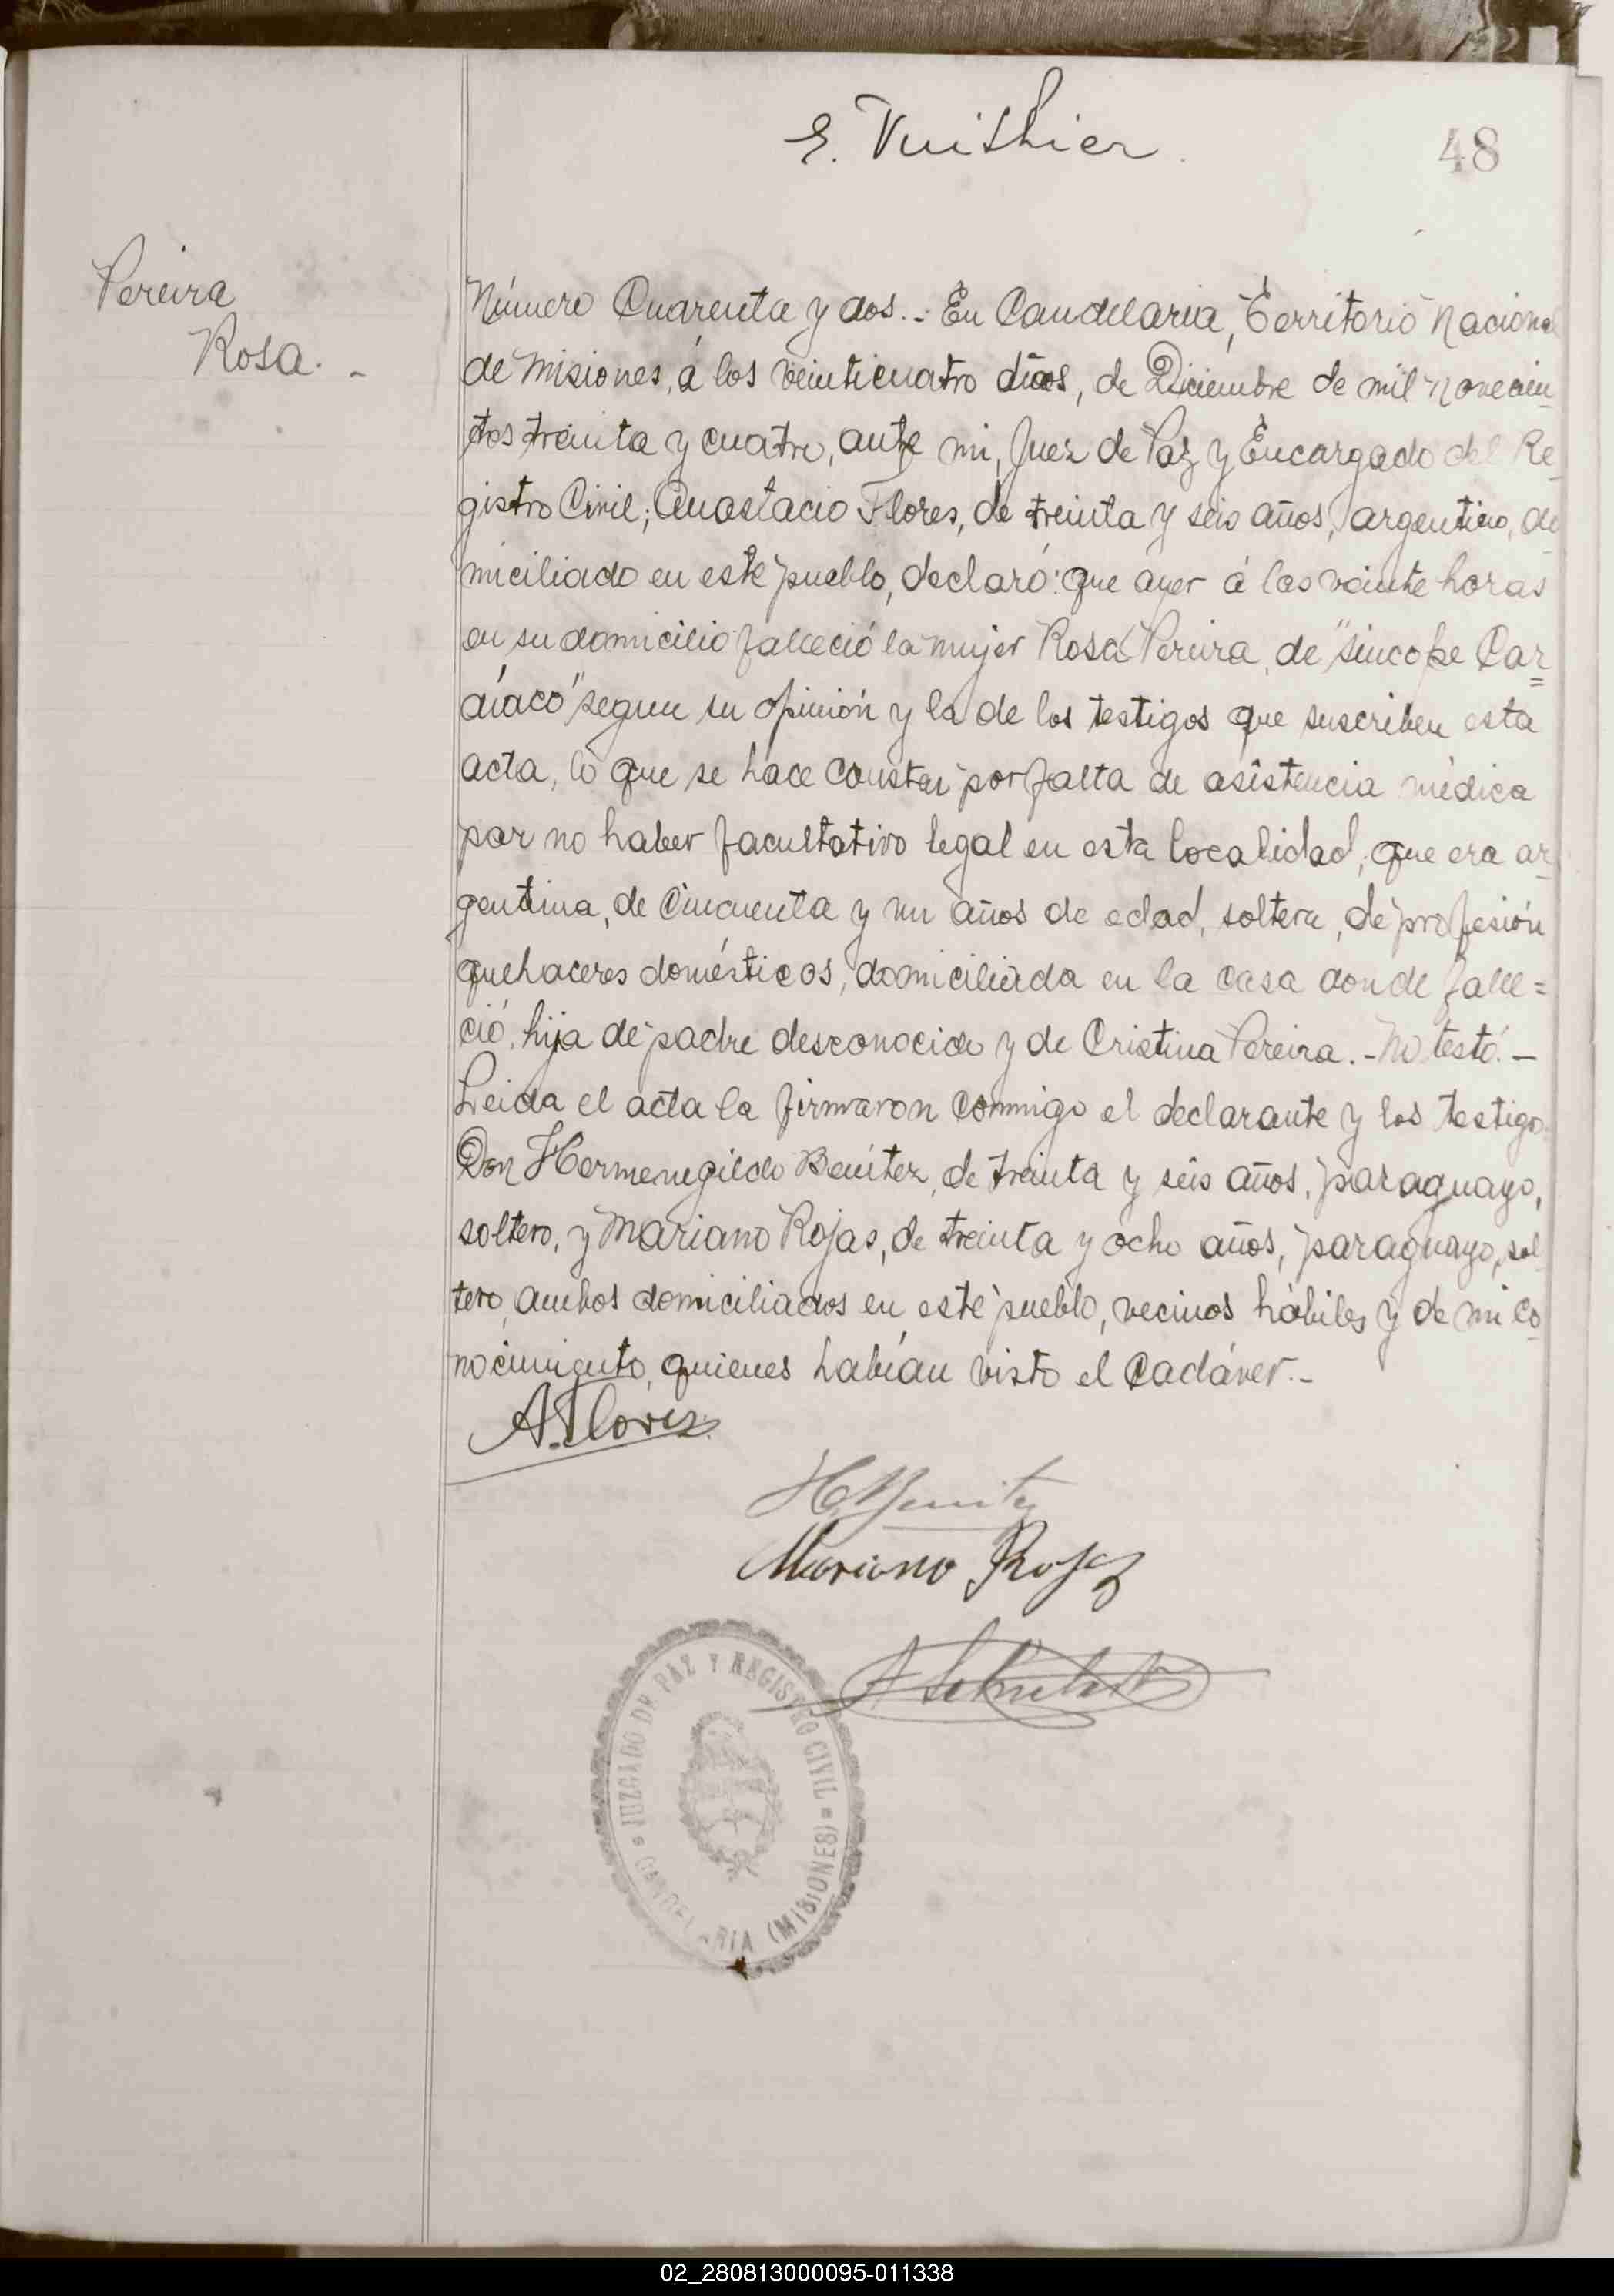 E. Vuithier
48
Pereira
Rosa. -
Número Cuarenta y dos.- En Candelaria, Territorio Nacional
de Misiones, á los veinticuatro dias, de Diciembre de mil novecien-
tos treinta y cuatro, ante mi, Juez de Paz y Encargado del Re-
gistro Civil; Anastacio Flores, de treinta y seis años, argentino, do-
miciliado en este pueblo, declaró: que ayer á las veinte horas
en su domicilio falleció la mujer Rosa Pereira, de "sincope Car=
díaco" segun su opinión y la de los testigos que suscriben esta
acta, lo que se hace constar por falta de asistencia médica
por no haber facultativo legal en esta localidad; que era ar-
gentina, de Cincuenta y un años de edad, soltera, de profesión
quehaceres domésticos, domiciliada en la casa donde falle=
ció, hija de padre desconocido y de Cristina Pereira.- No testó.-
Leida el acta la firmaron conmigo el declarante y los testigos
Don Hermenegildo Benítez, de treinta y seis años, paraguayo,
soltero, y Mariano Rojas, de treinta y ocho años, paraguayo, sol-
tero, ambos domiciliados en este pueblo, vecinos hábiles y de mi co-
nocimiento, quienes habían visto el Cadáver.-
A. Flores
H. Benitez
Mariano Rojas
JUZGADO DE PAZ Y REGISTRO CIVIL
CANDELARIA (MISIONES)
02_280813000095-011338